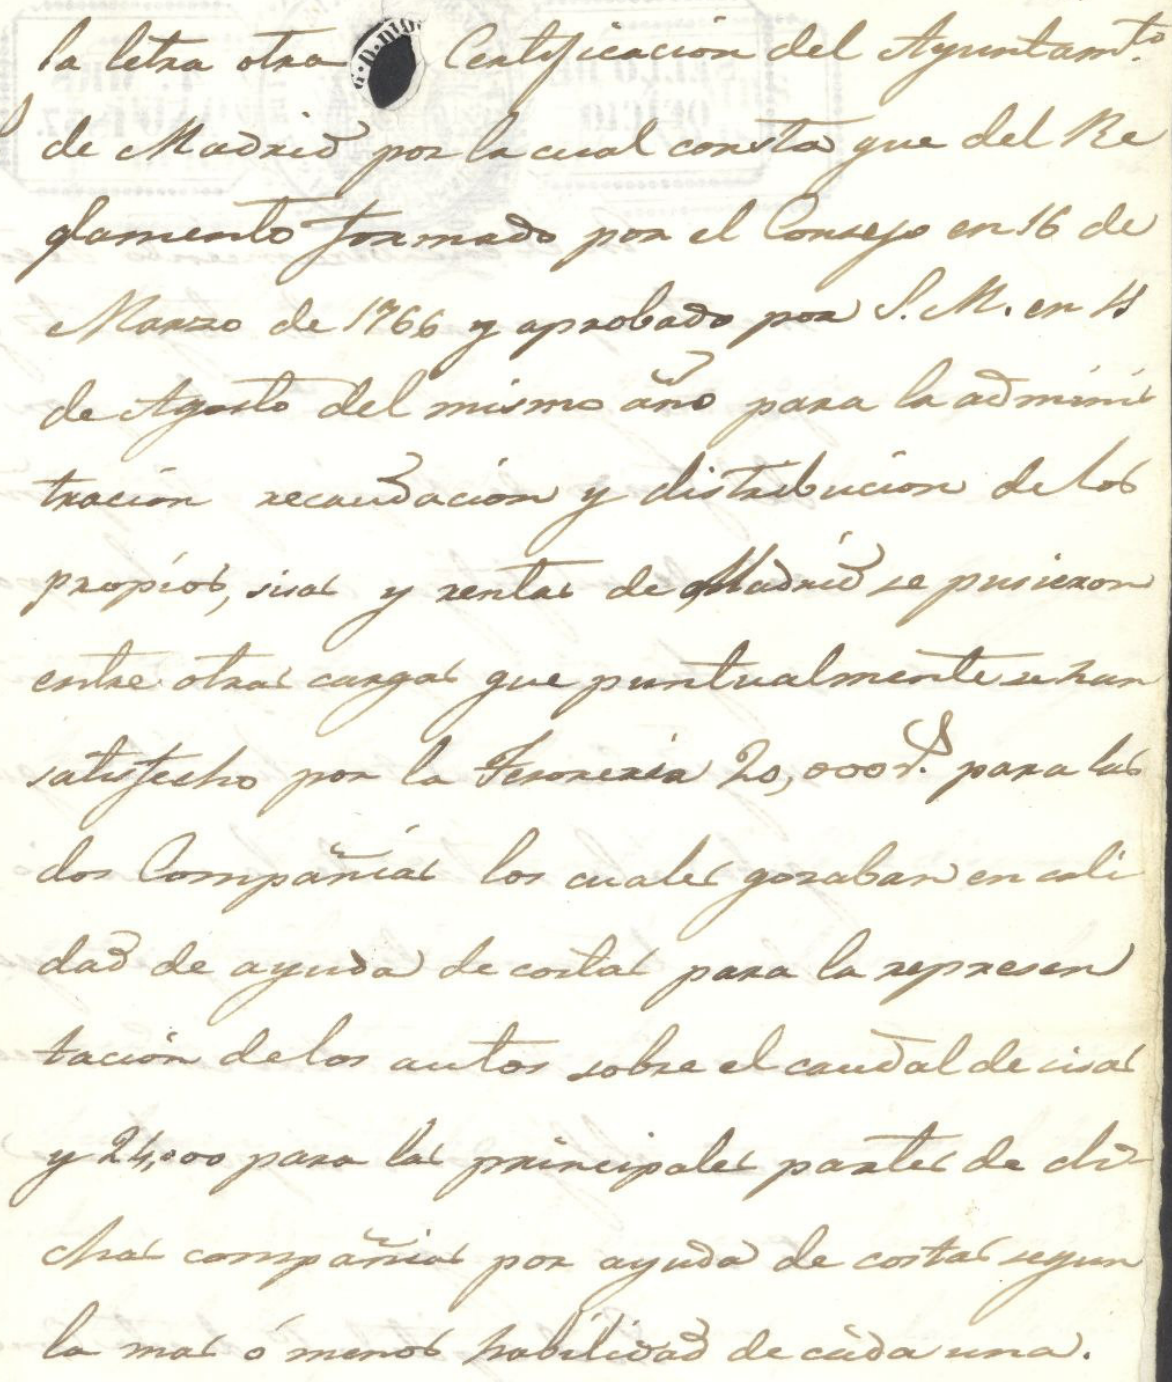 la letra otra Certificacion del Ayuntam.to
de Madrid por la cual consta que del Re
glamento formado por el Consejo en 16 de
Marzo de 1766 y aprobado por S. M. en
de Agosto del mismo año para la adminis
tracion recaudacion y distribucion de los
propios, sisas y rentas de Madrid se pusieron
entre otras cargas que puntualmente se han
satisfecho por la Tesoreria 20,000 r.s para las
dos Compañias los cuales gozaban en cali
dad de ayuda de costas para la represen
tacion de los autos sobre el caudal de sisas
y 24,000 para las principales partes de di-
chas compañias por ayuda de costas segun
la mas ó menos habilidad de cada una.